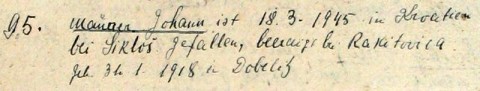 95. Johann ist 18.3.1945 in Kroatien
bei Siklos gefallen, beerdigt bei Rakitovica.
geb. 31.1.1918 in